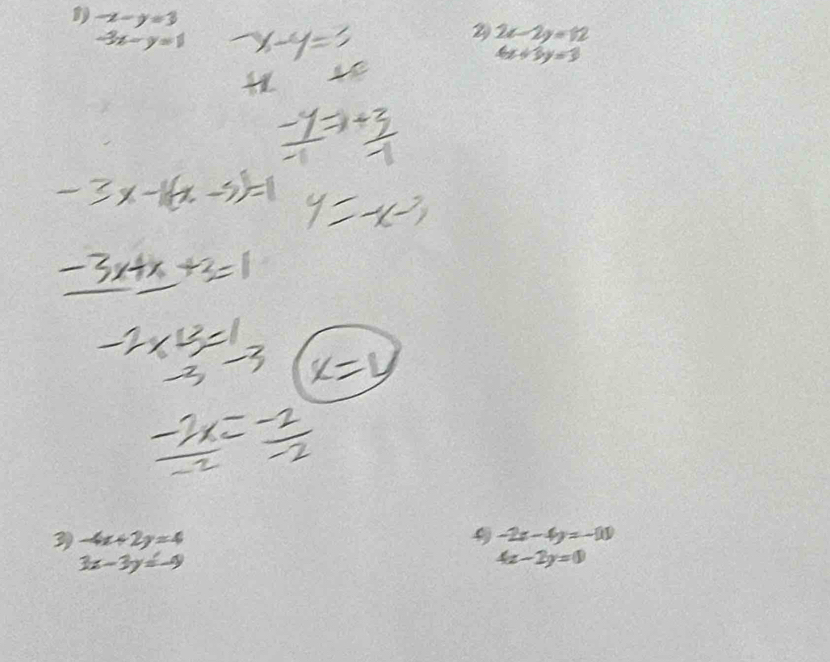 1) -x-y=3
-3x-y=1
-x-y=3
+x +x
-y=x+3
-1 -1
-3x-1(-x-3)=1
y=-x-3
-3x+x+3=1
-2x+3=1
-3 -3
x=1
-2x=-2
-2 -2
2) 2x-2y=12
4x+3y=3
3) -4x+2y=4
3x-3y=-9
4) -2x-4y=-10
4x-2y=0